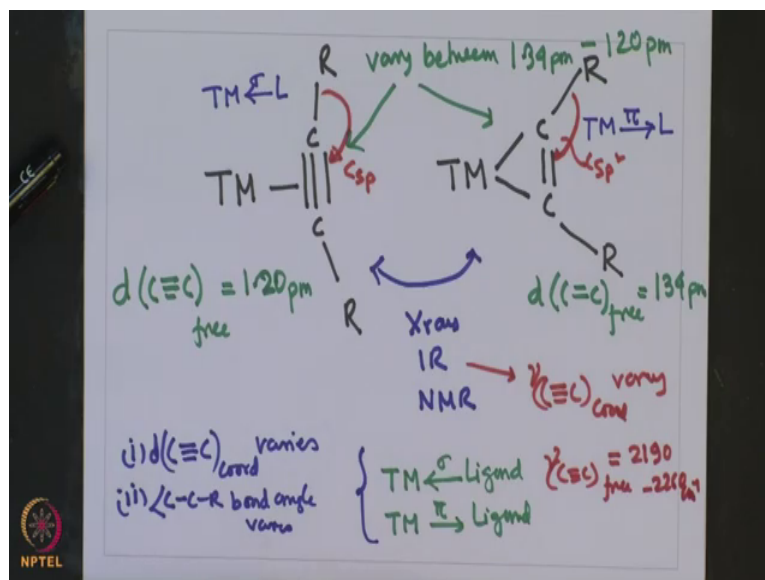 R
vary between 134 pm - 120 pm
R
TM ←σ L
C
C
TM π→ L
TM
Csp
TM
Csp²
C
C
R
R
d(C≡C)free = 1.20 pm
d(C=C)free = 134 pm
Xray
IR
NMR
ν(C≡C)coord vary
(i) d(C≡C)coord varies
(ii) ∠C-C-R bond angle varies
TM ←σ Ligand
TM π→ Ligand
ν(C≡C)free = 2190
CE
NPTEL